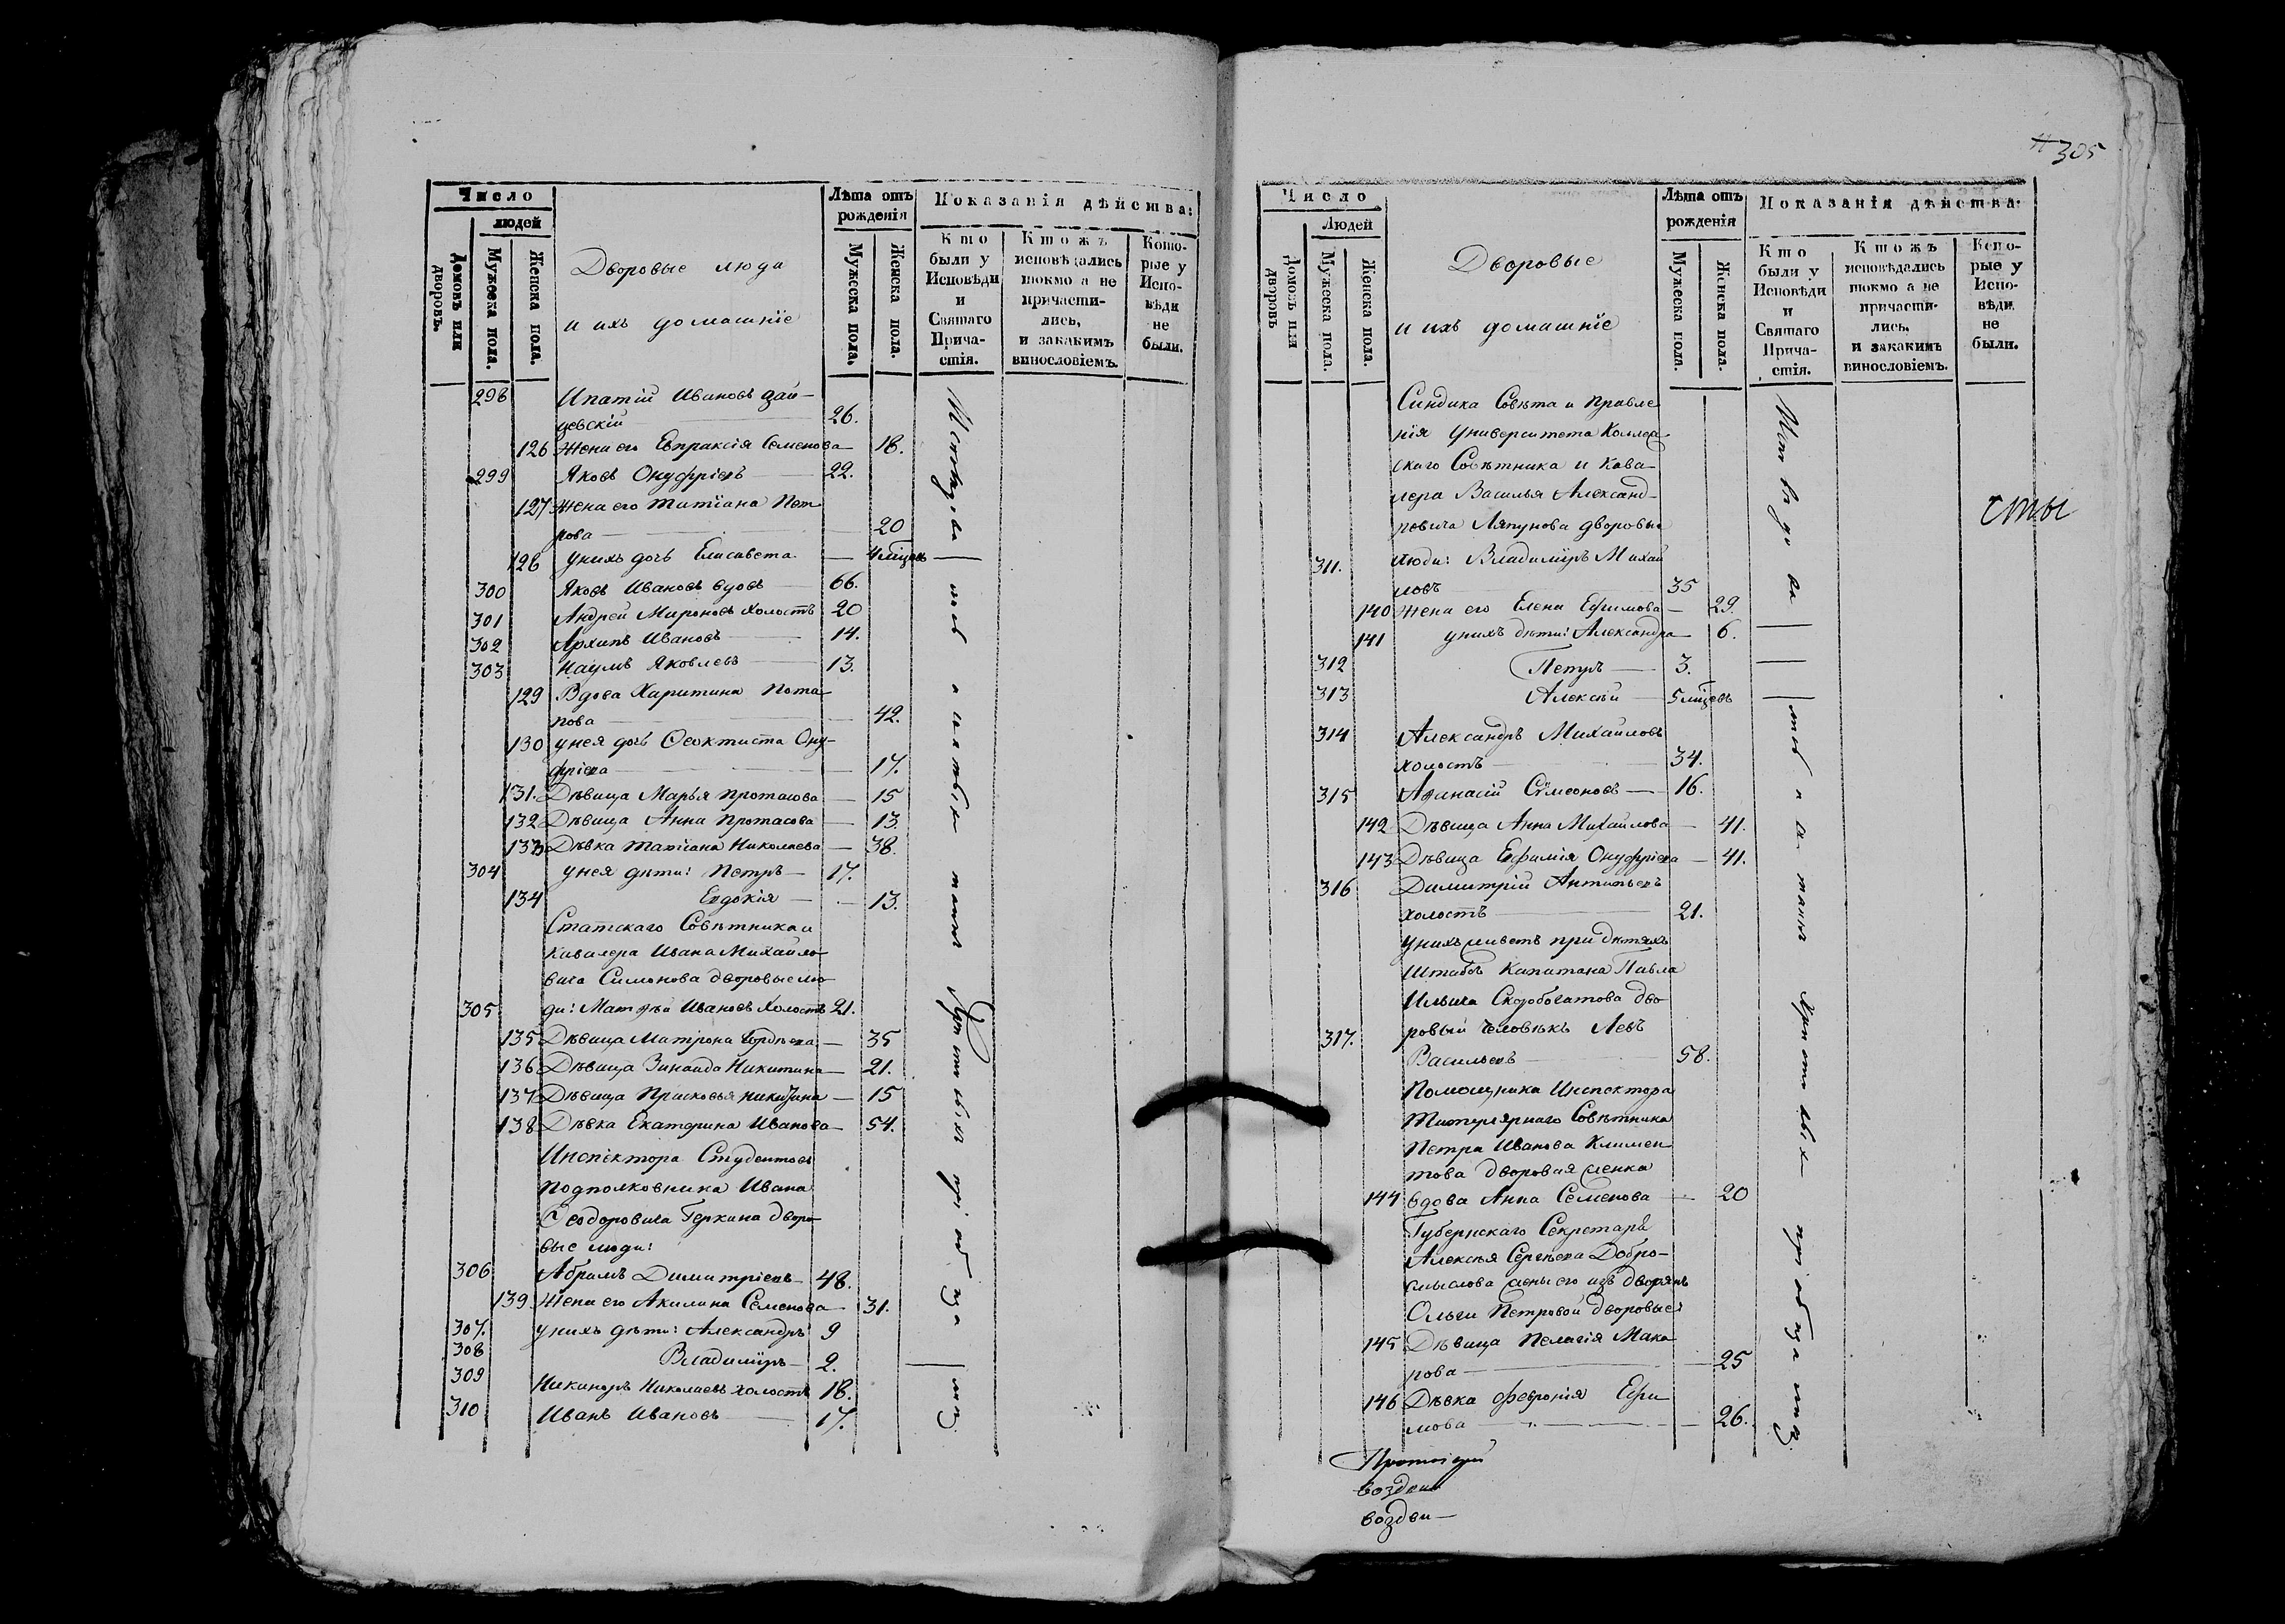 Число
людей
Домовъ или дворовъ.
Мужеска пола.
Женска пола.
Дворовые люди
и ихъ домашніе
Лѣта отъ рожденія
Мужеска пола.
Женска пола.
Показанія дѣйства:
Кто были у Исповѣди и Святаго Причастія.
Ктожъ исповѣдались токмо а не причастились, и закакимъ винословіемъ.
Которые у Исповѣди не были.
298 Ипатій Ивановъ Зай-
цевскій 26.
126 Жена его Евпраксія Семенова 18.
299 Яковъ Онуфріевъ 22.
127 Жена его Татіана Пет
рова 20
128 унихъ дочь Елисавета 4 мѣцовъ
300 Яковъ Ивановъ вдовъ 66.
301 Андрей Мироновъ холостъ 20
302 Архипъ Ивановъ 14.
303 Наумъ Яковлевъ 13.
129 Вдова Харитина Пота
пова 42.
130 унея дочь Феоктиста Ону-
фріева 17.
131. Дѣвица Марья Протасова 15
132 Дѣвица Анна Протасова 13.
133 Дѣвка Татіана Николаева 38.
304 унея дѣти: Петръ 17.
134 Евдокія 13.
Статскаго Совѣтника и
Кавалера Ивана Михайло
вича Симонова дворовые лю
305 ди: Матвѣй Ивановъ холостъ 21.
135 Дѣвица Матрона Гордѣева 35
136 Дѣвица Зинаида Никитина 21.
137 Дѣвица Прасковья Никитина 15
138 Дѣвка Екатерина Иванова 54.
Инспектора Студентовъ
Подполковника Ивана
Феодоровича Геркина дворо
вые люди:
306 Абрамъ Димитріевъ 48.
139 Жена его Акилина Семенова 31.
307. унихъ дѣти: Александръ 9
308 Владиміръ 2.
309 Никаноръ Николаевъ холостъ 18.
310 Иванъ Ивановъ 17.
305
Число
Людей
Домовъ или дворовъ
Мужеска пола.
Женска пола.
Дворовые
и ихъ домашніе
Лѣта отъ рожденія
Мужеска пола.
Женска пола.
Показанія дѣйства:
Кто были у Исповѣди и Святаго Причастія.
Ктожъ исповѣдались токмо а не причастились, и закакимъ винословіемъ.
Которые у Исповѣди не были.
Синдика Совѣта и Правле
нія Университета Коллеж
скаго Совѣтника и Кава
лера Василья Александ-
ровича Ляпунова дворовые
311. люди: Владиміръ Михай
ловъ 35
140 Жена его Елена Ефимова 29.
141 унихъ дѣти: Александра 6.
312 Петръ 3.
313 Алексѣй 5 мѣцовъ
314 Александръ Михайловъ
холостъ 34.
315 Афанасій Сѵмеоновъ 16.
142 Дѣвица Анна Михайлова 41.
143 Дѣвица Евфимія Онуфріева 41.
316 Димитрій Антипьевъ
холостъ 21.
унихъ живетъ при дѣтяхъ
Штабсъ Капитана Павла
Ильича Скоробогатова дво
317. ровый человѣкъ Левъ
Васильевъ 58.
Помощника Инспектора
Титулярнаго Совѣтника
Петра Иванова Климен
това дворовая женка
144 вдова Анна Семенова 20
Губернскаго Секретаря
Алексѣя Сергѣева Добро-
смыслова жены его изъ дворянъ
Ольги Петровой дворовые:
145 Дѣвица Пелагія Мака
рова 25
146 Дѣвка Февронія Ефи
мова 26.
сты
Протоіерей
воздви-